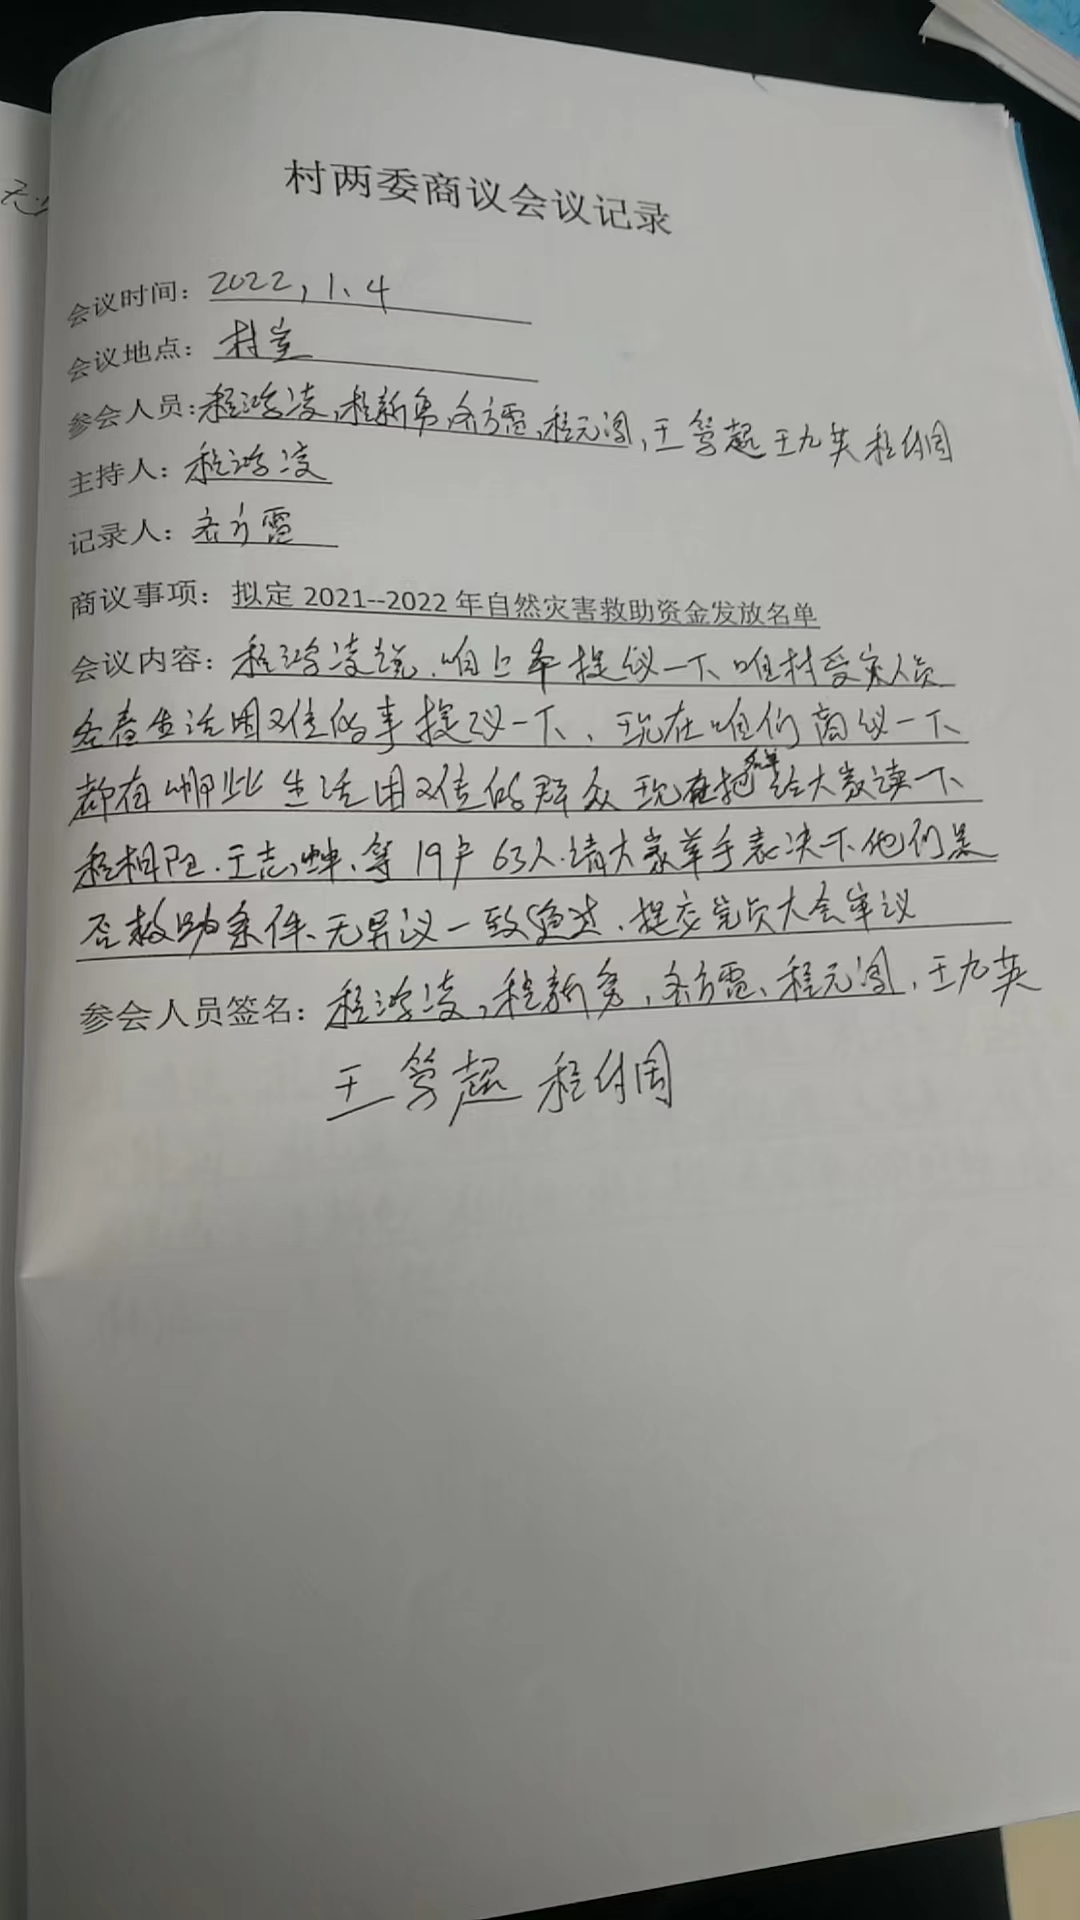 村两委商议会议记录
会议时间：2022，1、4
会议地点：村室
参会人员：程鸿凌、程新勇、程元阁、王箩超 王九英 程付周
主持人：程鸿凌
记录人：
商议事项：拟定 2021--2022 年自然灾害救助资金发放名单
会议内容：程鸿凌说、咱上午提议一下咱村受灾人员
冬春生活困难的事提议一下、现在咱们商议一下
都有哪些生活困难的群众现在把名单给大家读一下
程相阳、王志、等19户63人、请大家举手表决下他们是
否救助条件、无异议一致通过、提交党员大会审议
参会人员签名：程鸿凌、程新勇、程元阁、王九英
王箩超 程付周